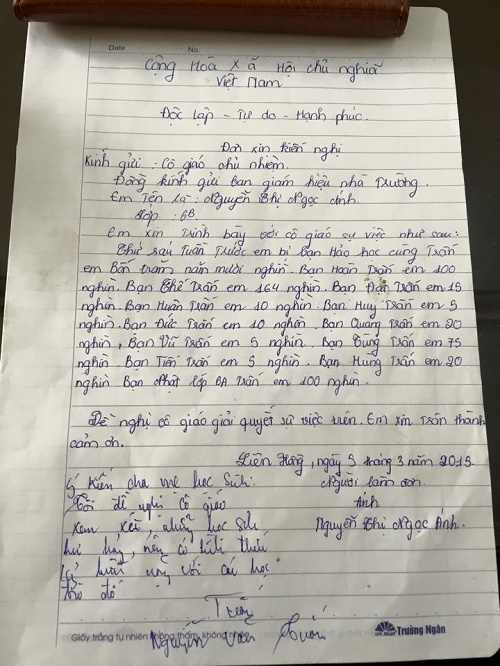 Date No.
Cộng Hoà Xã Hội chủ nghĩa
Việt Nam
Độc Lập - Tự do - Hạnh phúc.
Đơn xin kiến nghị
Kính gửi : Cô giáo chủ nhiệm.
Đồng kính gửi Ban giám hiệu nhà Trường.
Em Tên là : Nguyễn Thị Ngọc Ánh.
Lớp : 6B.
Em xin Trình bày với cô giáo sự việc như sau:
Thứ sáu Tuần Trước em bị bạn Hảo học cùng Trấn
em Bốn trăm năm mươi nghìn. Bạn Hoàn Trấn em 100
nghìn. Bạn Thế Trấn em 164 nghìn. Bạn Đạt Trấn em 15
nghìn. Bạn Huấn Trấn em 10 nghìn. Bạn Huy Trấn em 5
nghìn. Bạn Đức Trấn em 10 nghìn. Bạn Quang Trấn em 20
nghìn, Bạn Vũ Trấn em 5 nghìn. Bạn Tùng Trấn em 75
nghìn. Bạn Tiến Trấn em 5 nghìn. Bạn Hùng Trấn em 20
nghìn Bạn Nhật lớp 8A Trấn em 100 nghìn.
Đề nghị cô giáo giải quyết sự việc trên. Em xin trân thành
cảm ơn.
Liên Hồng, ngày 5 tháng 3 năm 2015.
ý kiến cha mẹ học Sinh: Người làm đơn
Tôi đề nghị cô giáo Ánh
xem xét, những học sinh Nguyễn Thị Ngọc Ánh.
hư hỏng, nên có hình thức
kỷ luật với các học
trò đó
Nguyễn Văn
Giấy trắng tự nhiên không thấm, không nhòe Trường Ngân